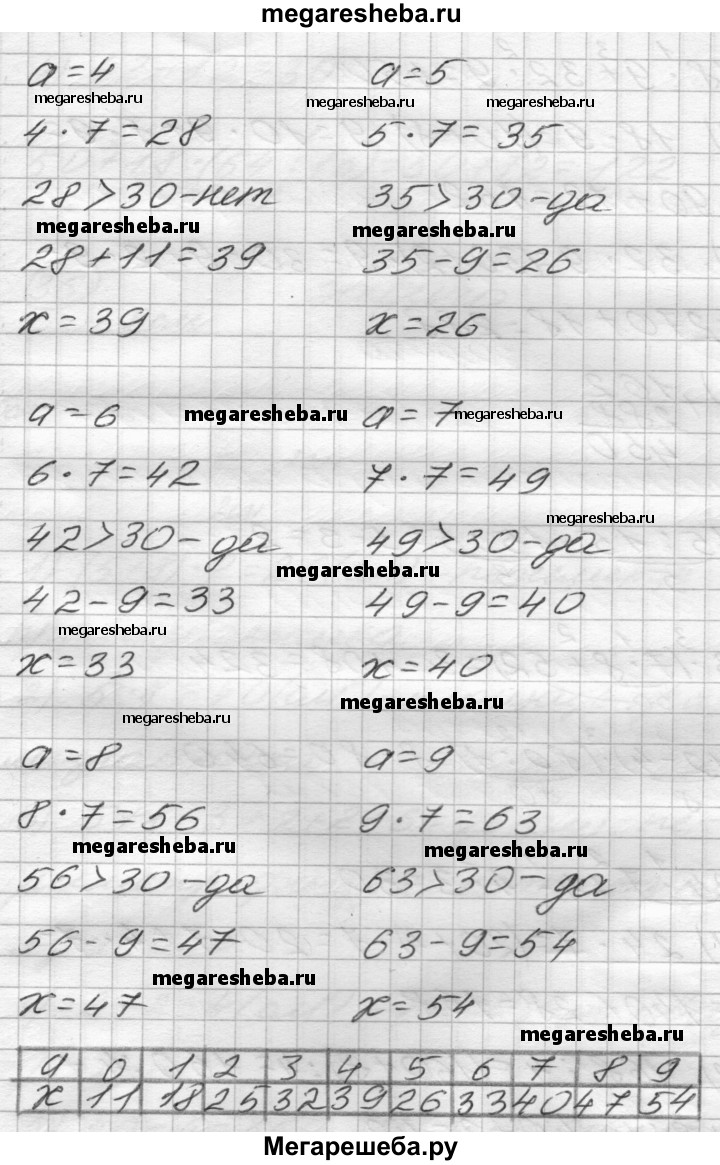 megaresheba.ru
a=4 a=5
megaresheba.ru megaresheba.ru megaresheba.ru
4·7=28 5·7=35
28>30-нет 35>30-да
megaresheba.ru megaresheba.ru
28+11=39 35-9=26
x=39 x=26
a=6 megaresheba.ru a=7 megaresheba.ru
6·7=42 7·7=49
megaresheba.ru
42>30-да 49>30-да
megaresheba.ru
42-9=33 49-9=40
megaresheba.ru
x=33 x=40
megaresheba.ru
megaresheba.ru
a=8 a=9
8·7=56 9·7=63
megaresheba.ru megaresheba.ru
56>30-да 63>30-да
56-9=47 63-9=54
megaresheba.ru
x=47 x=54
megaresheba.ru
a 0 1 2 3 4 5 6 7 8 9
x 11 18 25 32 39 26 33 40 47 54
Мегарешеба.ру